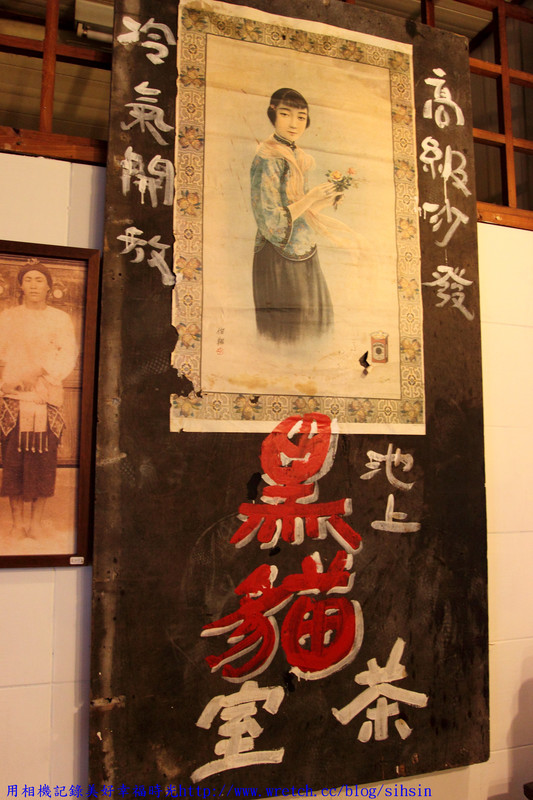 高級沙發
冷氣開放
池上
黑貓
茶室
用相機記錄美好幸福時光http://www.wretch.cc/blog/sihsin